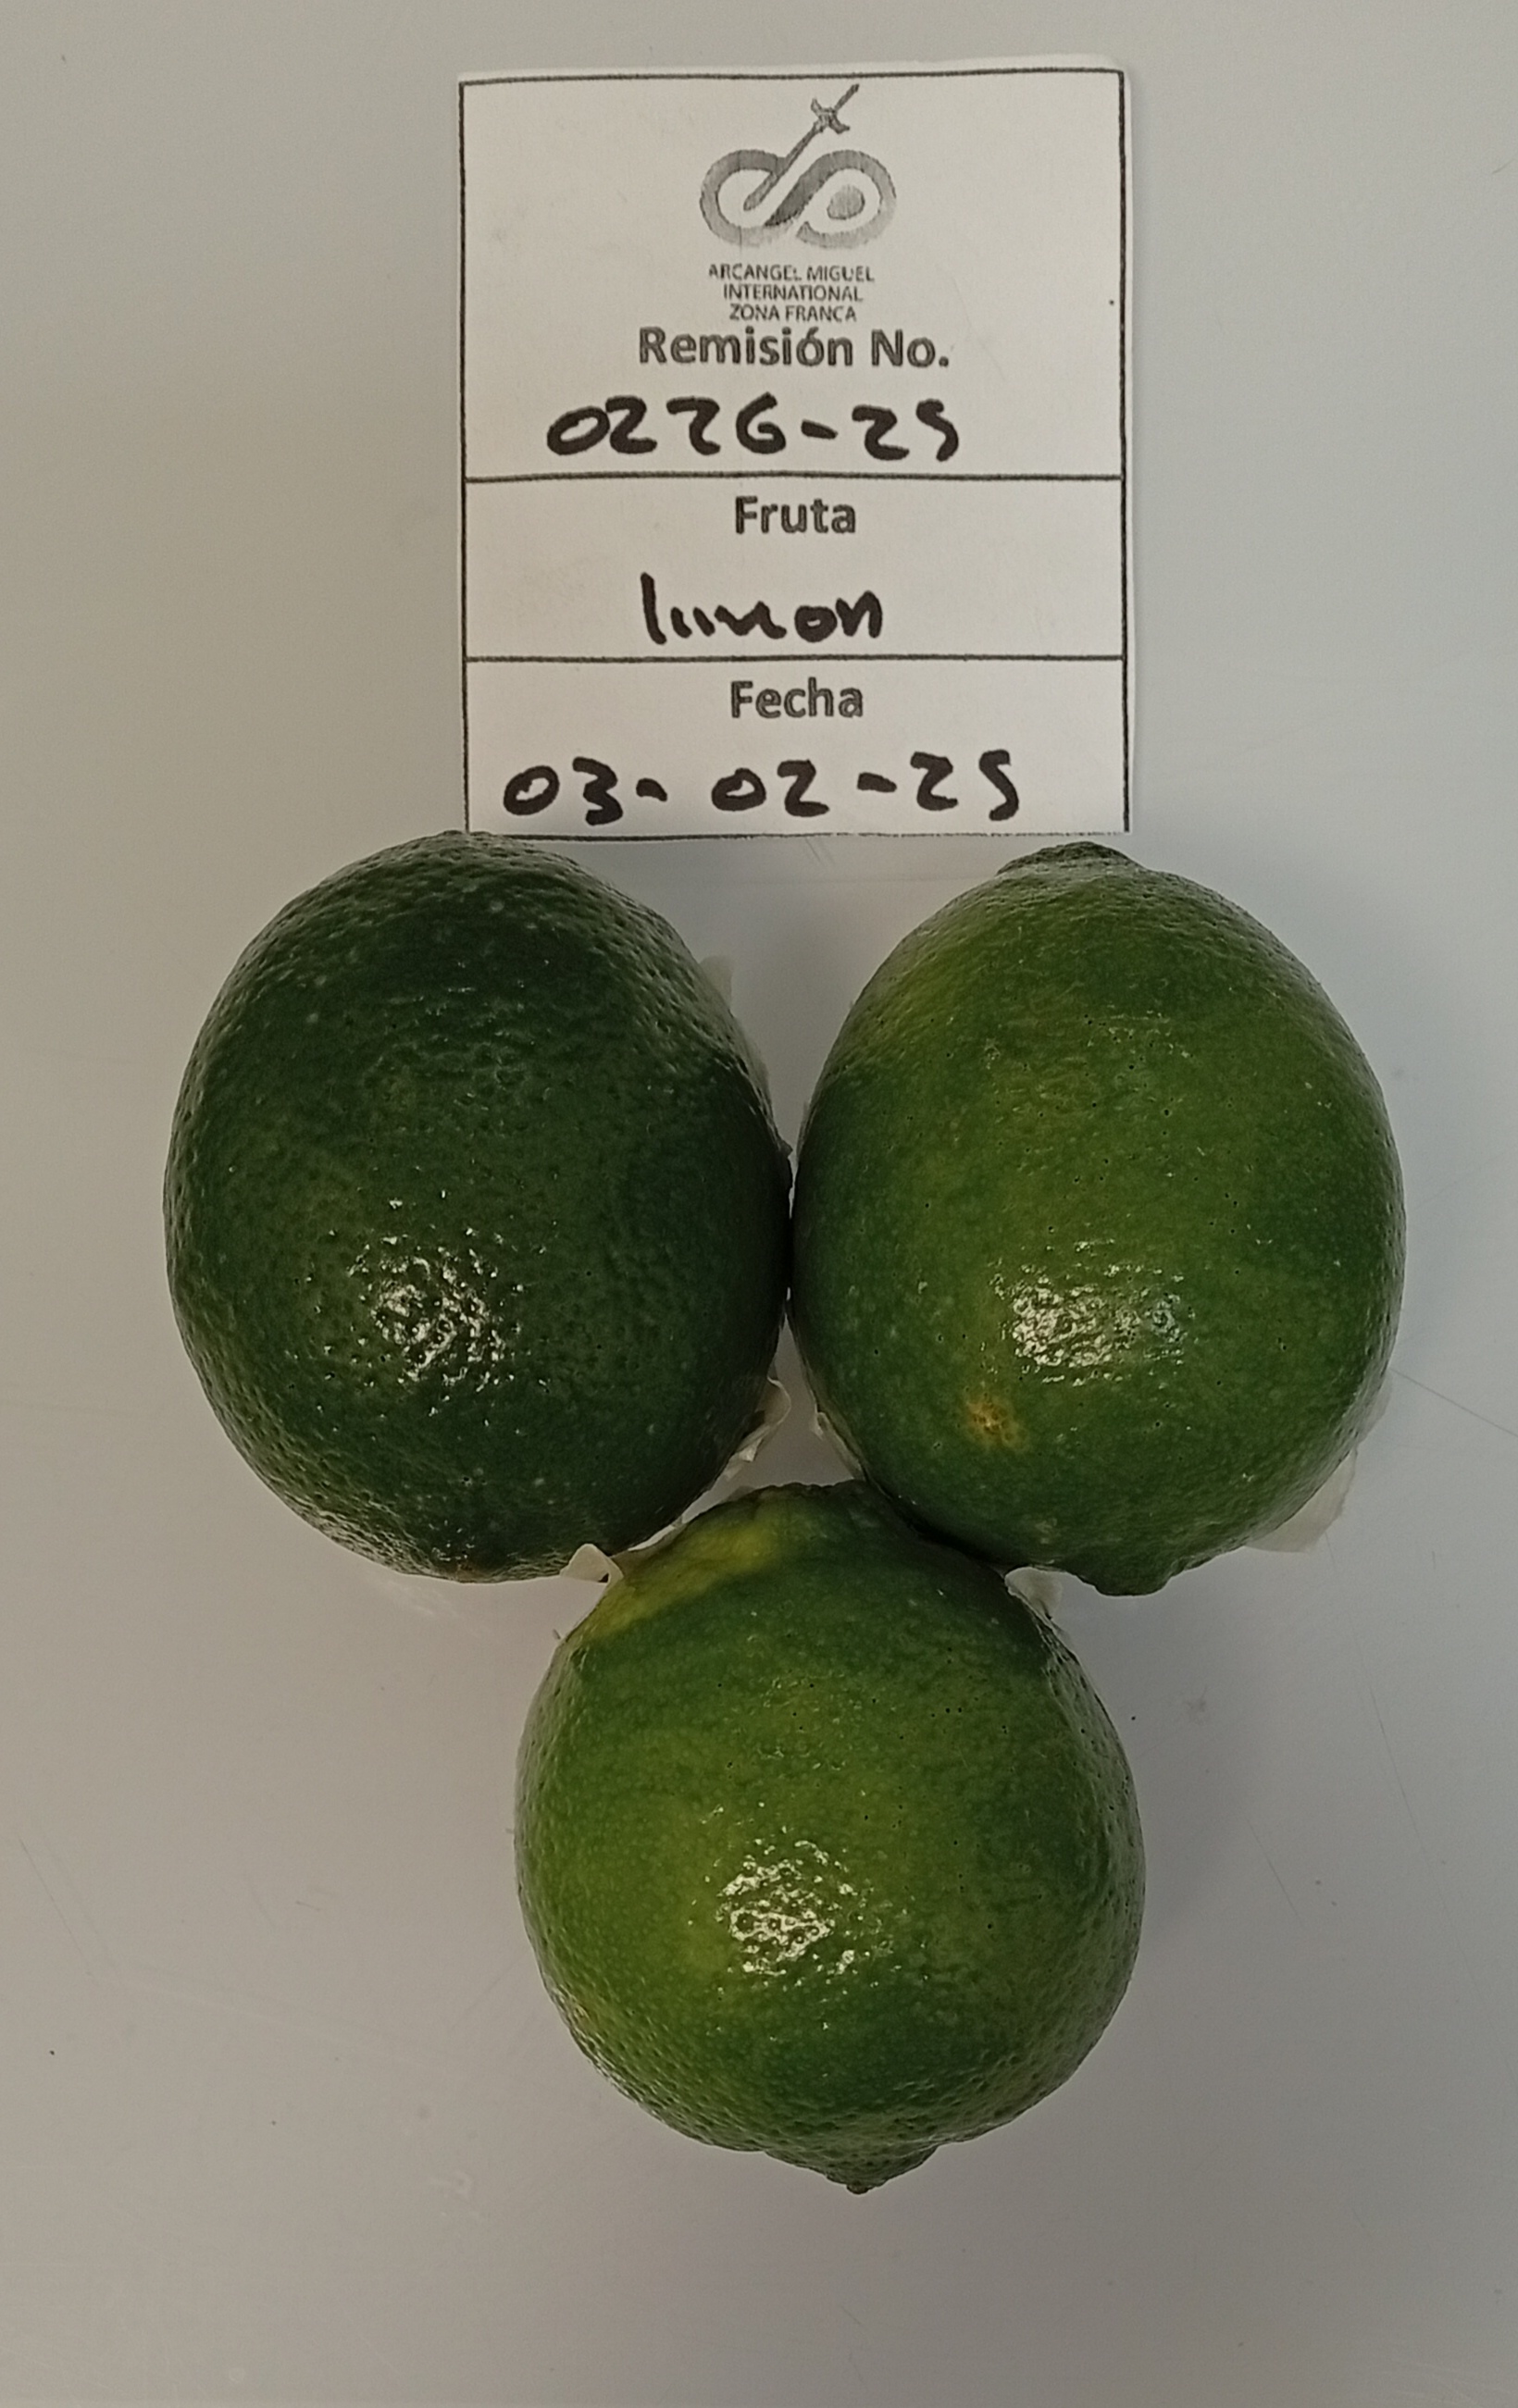 ARCANGEL MIGUEL
INTERNATIONAL
ZONA FRANCA
Remisión No.
0226-25
Fruta
limon
Fecha
03-02-25